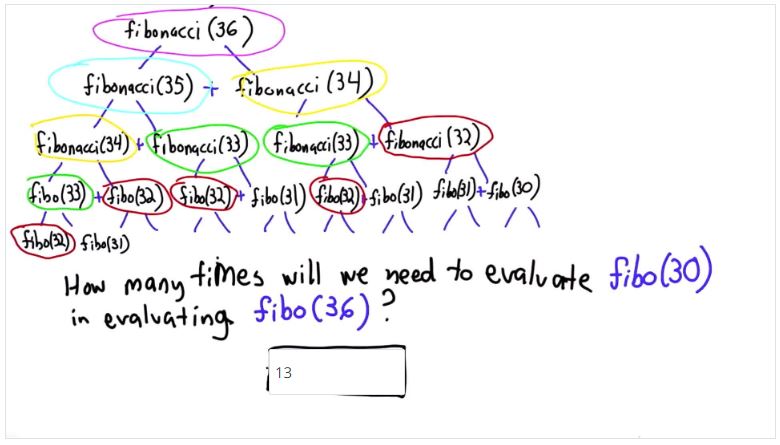 fibonacci (36)
fibonacci(35) + fibonacci (34)
fibonacci(34) + fibonacci(33) fibonacci(33) + fibonacci(32)
fibo(33) + fibo(32) fibo(32) + fibo(31) fibo(32) + fibo(31) fibo(31) + fibo(30)
fibo(32) fibo(31)
How many times will we need to evaluate fibo(30)
in evaluating fibo(36)?
13